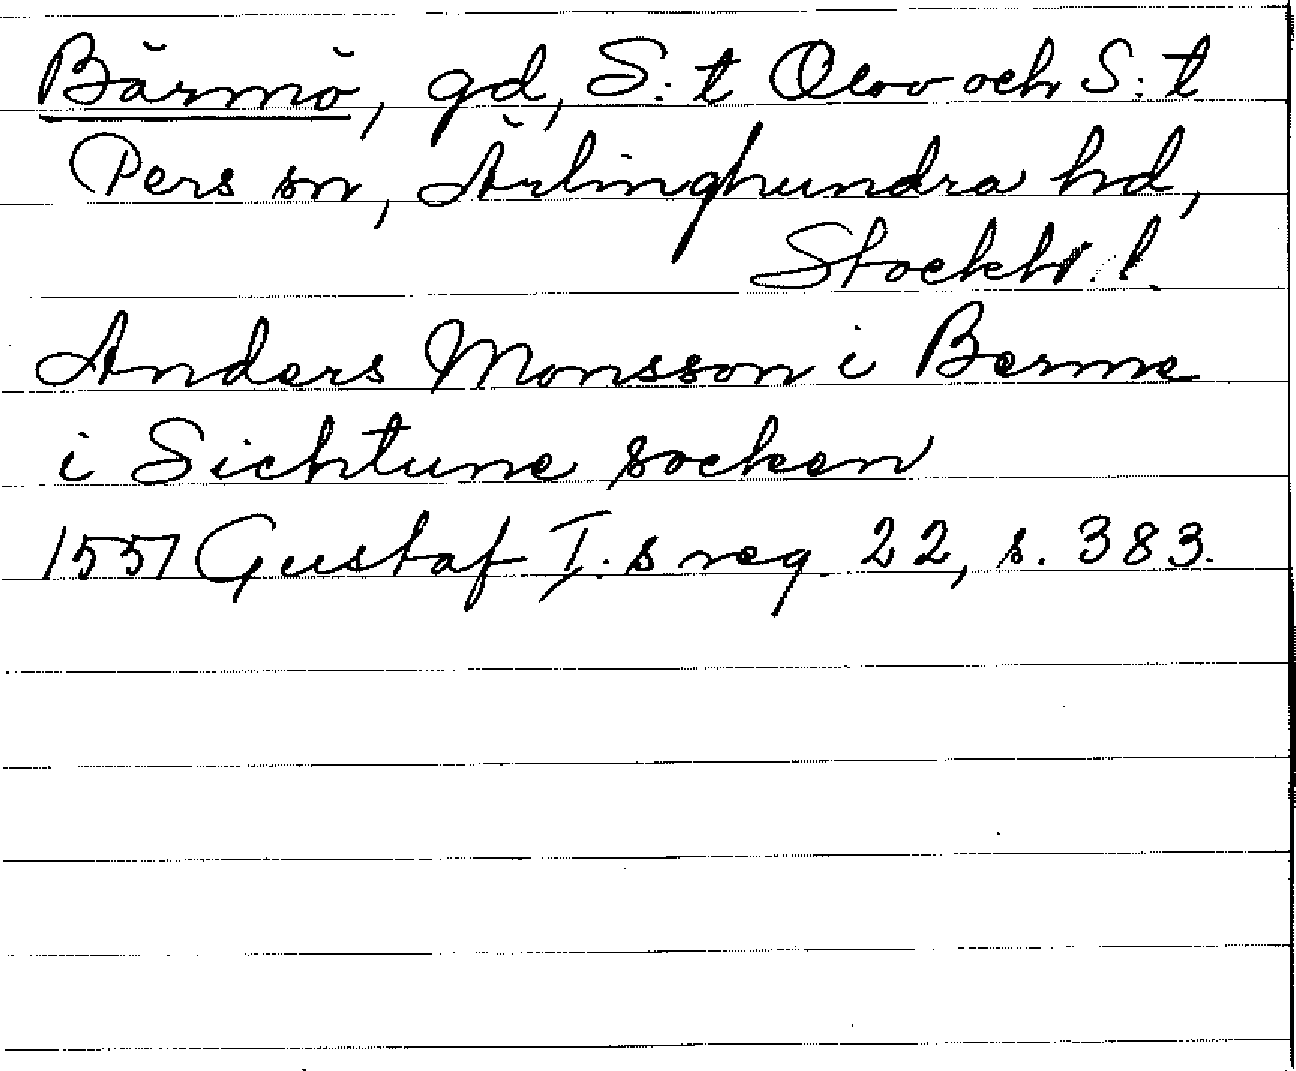 Bärmö, gd, S:t Olov och S:t
Pers sn, Ärlinghundra hd,
Stockh. l.
Anders Monsson i Berme
i Sichtune socken
1551 Gustaf I.s reg. 22, s. 383.